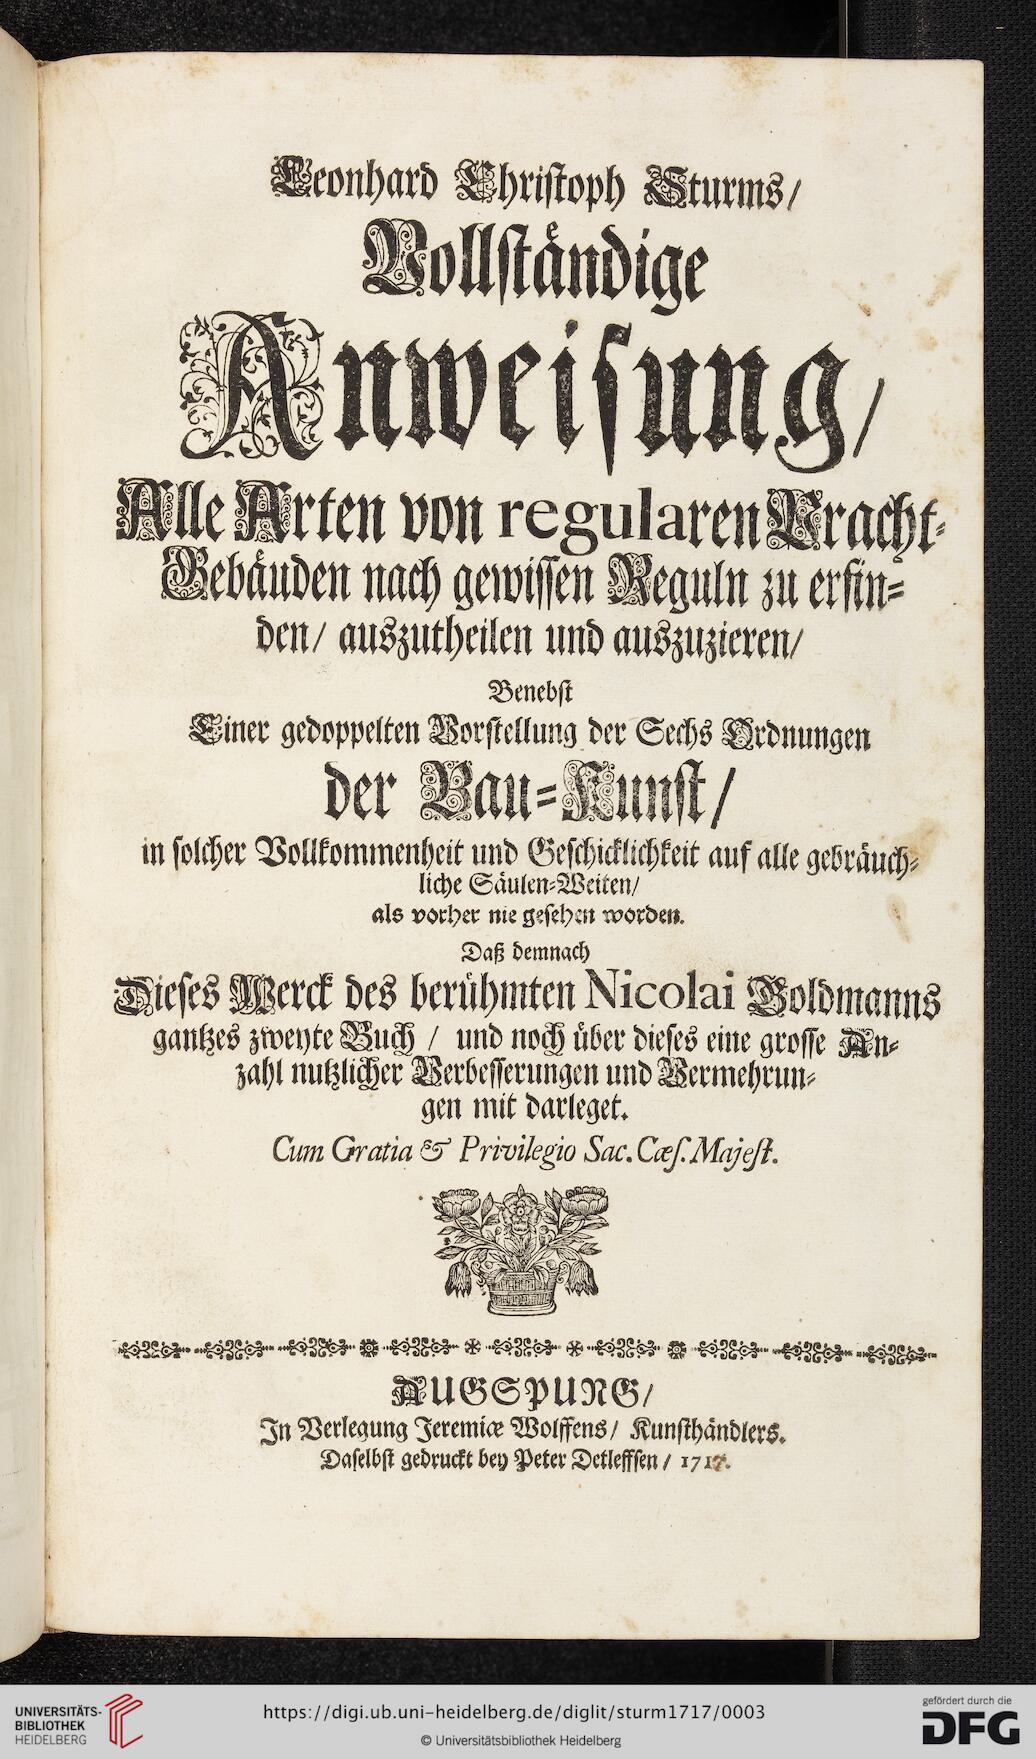 Leonhard Chriſtoph Sturms/
Vollſtaͤndige
Anweiſung/
Alle Arten von regularen Pracht-
Gebäuden nach gewiſſen Reguln zu erfin-
den/ auszutheilen und auszuzieren/
Benebſt
Einer gedoppelten Vorſtellung der Sechs Ordnungen
der Bau-Kunſt/
in ſolcher Vollkommenheit und Geſchicklichkeit auf alle gebräuch-
liche Säulen-Weiten/
als vorher nie geſehen worden.
Daß demnach
Dieſes Werck des berühmten Nicolai Goldmanns
gantzes zweyte Buch / und noch über dieſes eine groſſe An-
zahl nutzlicher Verbeſſerungen und Vermehrun-
gen mit darleget.
Cum Gratia & Privilegio Sac. Cæſ. Majeſt.
AUGSPURG/
In Verlegung Jeremiæ Wolffens/ Kunſthändlers.
Daſelbſt gedruckt bey Peter Detleffſen / 1717.
UNIVERSITÄTS-
BIBLIOTHEK
HEIDELBERG
https://digi.ub.uni-heidelberg.de/diglit/sturm1717/0003
© Universitätsbibliothek Heidelberg
gefördert durch die
DFG